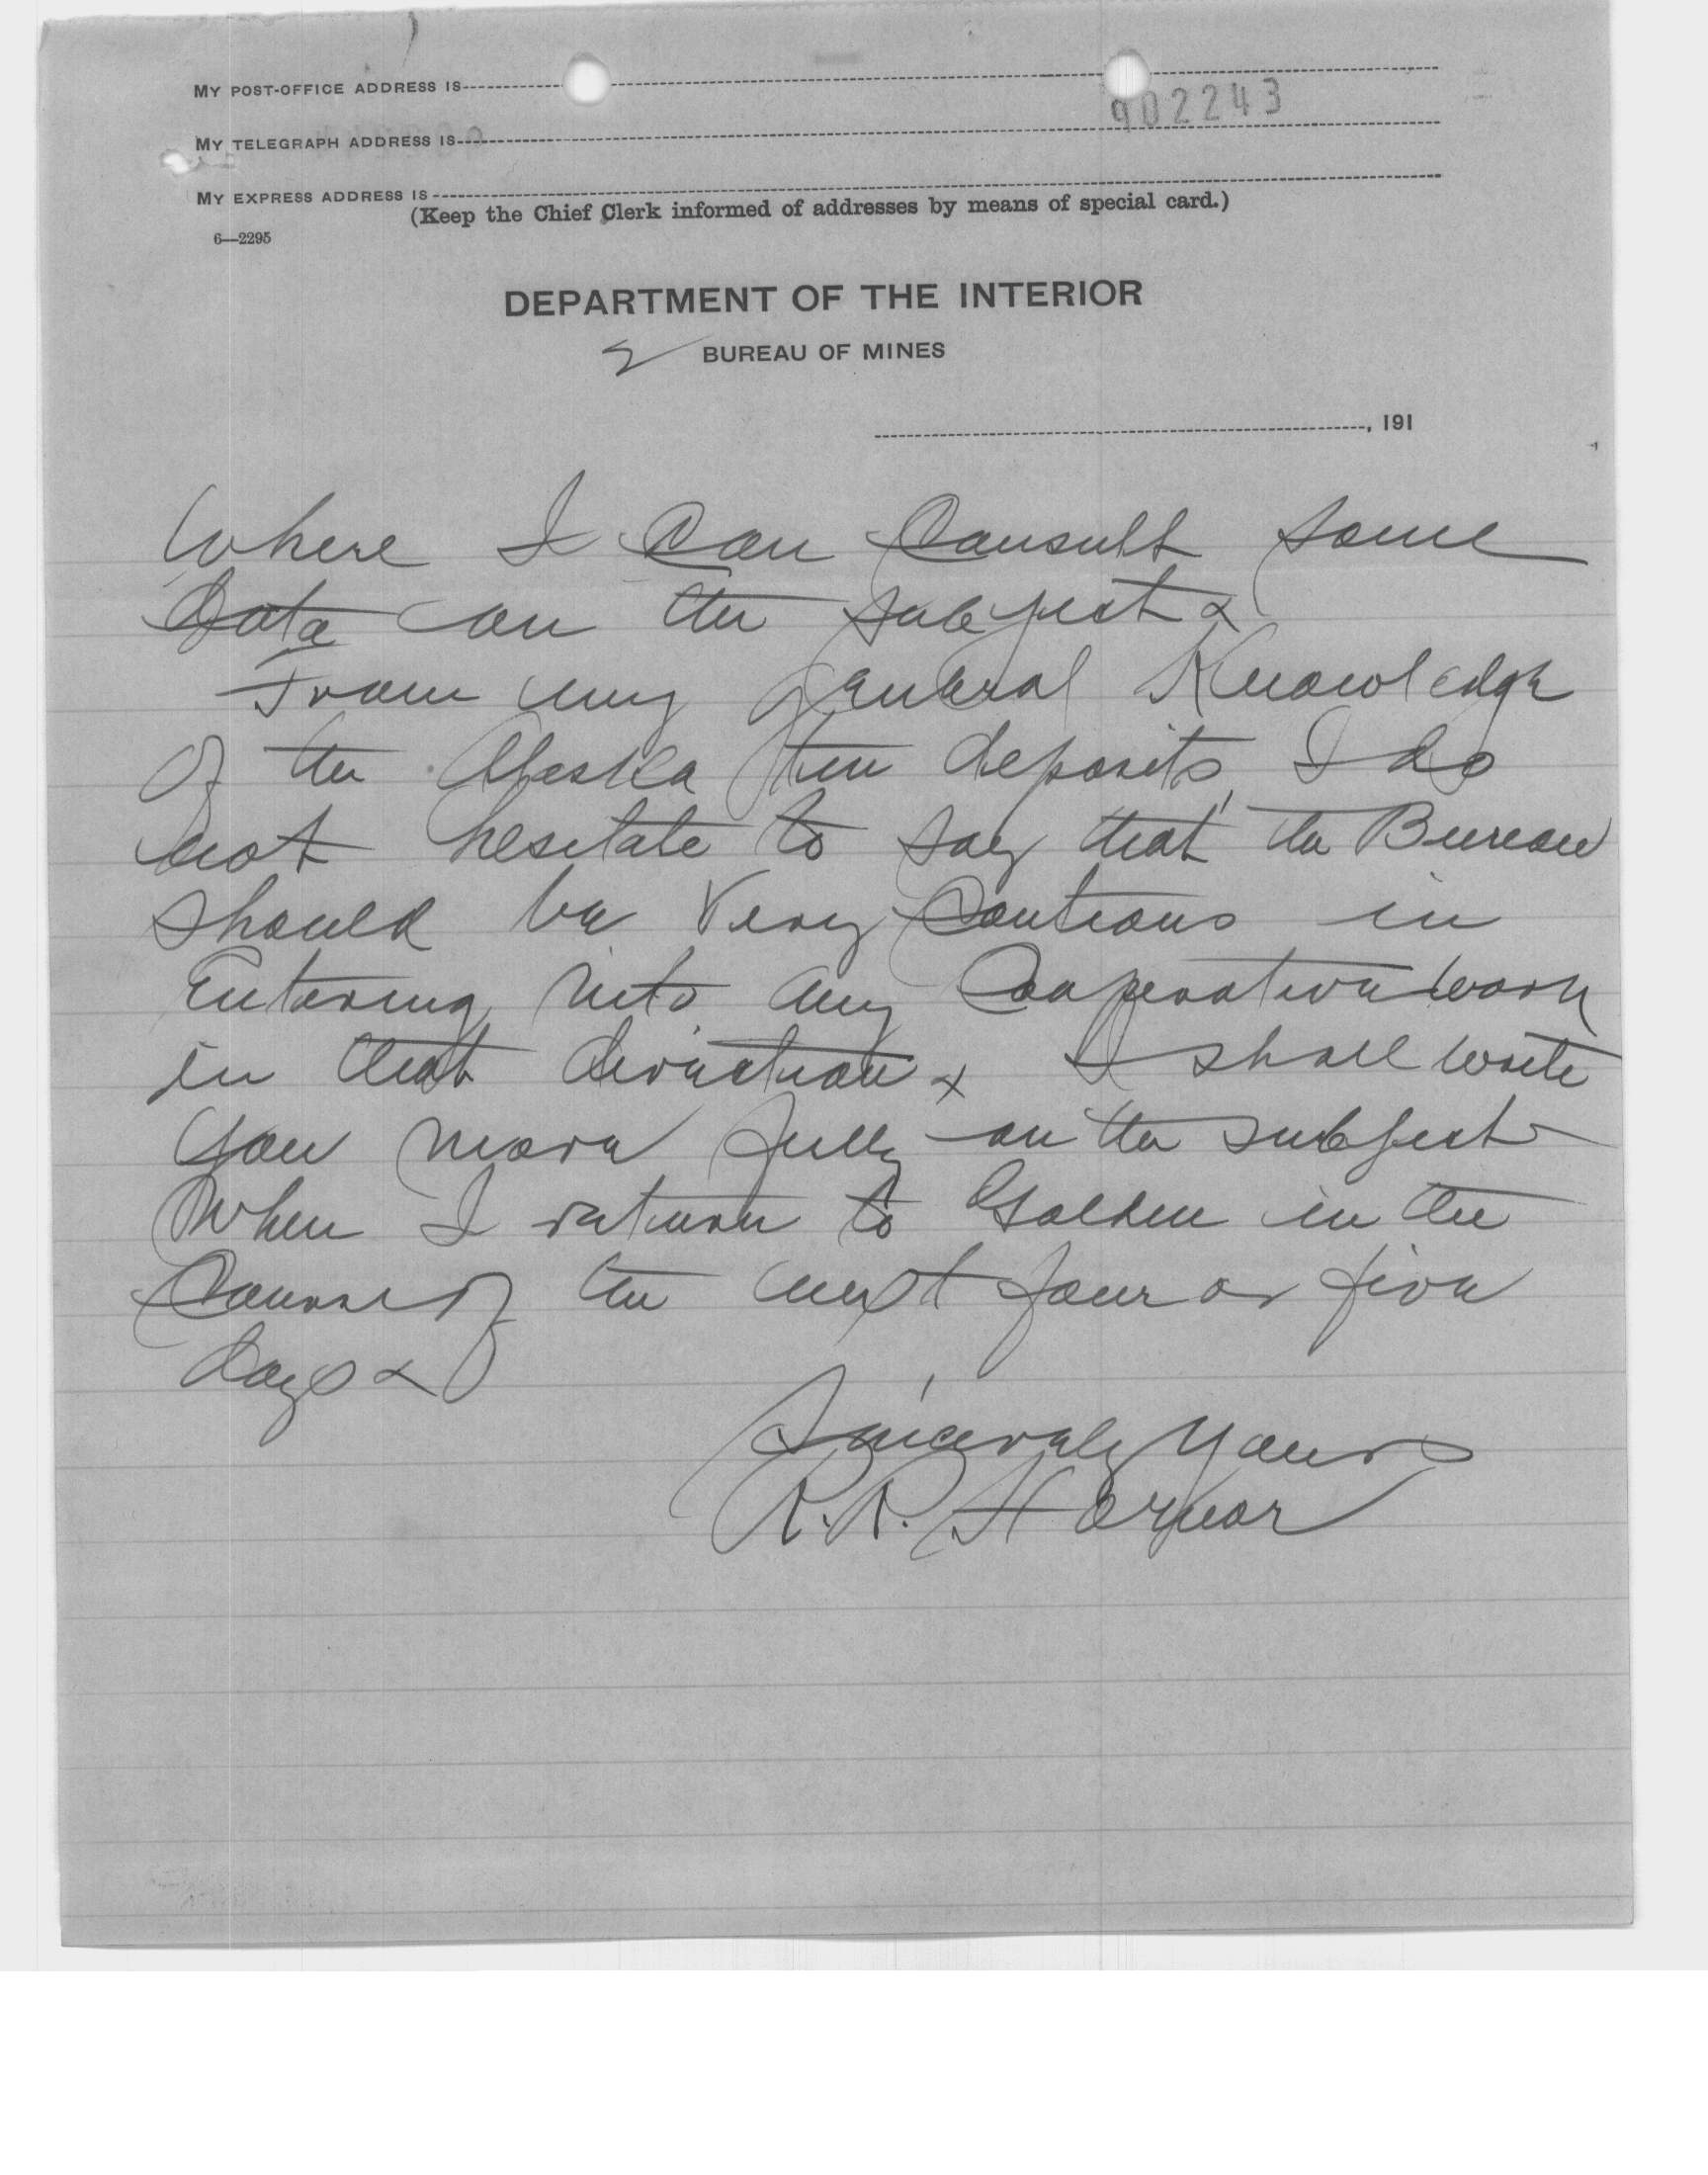 MY POST-OFFICE ADDRESS IS
902243
MY TELEGRAPH ADDRESS IS
MY EXPRESS ADDRESS IS
(Keep the Chief Clerk informed of addresses by means of special card.)
6—2295
DEPARTMENT OF THE INTERIOR
2 BUREAU OF MINES
, 191
Where I can consult some
data on the subject x
From my general Knowledge
of the Alaska tin deposits, I do
not hesitate to say that the Bureau
should be very cautious in
Entering into any Cooperative work
in that direction x I shall write
you more fully on the subject
When I return to Golden in the
Course of the next four or five
days x
Sincerely Yours
R.R. Hornor